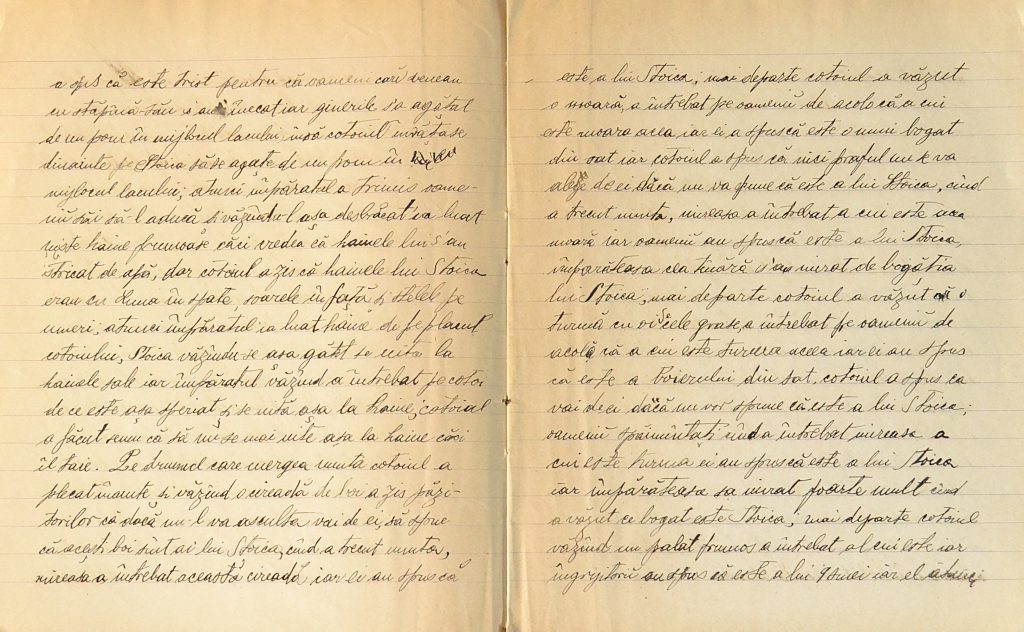 a spus că este trist pentru că oameni cari veneau
cu stăpînu-său s-au înecat iar ginerile sa agățat
de un pom în mijlocul lacului, însă cotoiul învățase
dinainte pe Stoica să se agațe de un pom în
mijlocul lacului; atunci împăratul a trimis oame-
nii săi să-l aducă și văzîndu-l așa desbrăcat ia luat
niște haine frumoase căci credea că hainele lui s'au
stricat de apă, dar cotoiul a zis că hainele lui Stoica
erau cu luna în spate, soarele în față și stelele pe
umeri; atunci împăratul ia luat haine de pe placul
cotoiului, Stoica văzîndu-se așa gătit se uita la
hainele sale iar împăratul văzînd a întrebat pe cotoi
de ce este așa speriat și se uită așa la haine; cotoiul
a făcut semn că să nu se mai uite așa la haine căci
îl taie. Pe drumul care mergea nunta cotoiul a
plecat înainte și văzînd o cireadă de boi a zis păzi-
torilor că dacă nu-l va asculta vai de ei, să spue
că acești boi sînt ai lui Stoica, cînd a trecut nunta,
mireasa a întrebat această cireadă iar ei au spus că
este a lui Stoica; mai departe cotoiul a văzut
o moară, a întrebat pe oamenii de acolo că a cui
este moara acea, iar ei a spus că este o unui bogat
din sat iar cotoiul a spus că nici praful nu se va
alege de ei dacă nu va spune că este a lui Stoica, cînd
a trecut nunta, mireasa a întrebat a cui este acea
moară iar oamenii au spus că este a lui Stoica,
împărăteasa cea tînără s'au mirat de bogăția
lui Stoica; mai departe cotoiul a văzut o
turmă cu oițele grase, a întrebat pe oamenii de
acolo că a cui este turma aceea iar ei au spus
că este a Boierului din sat, cotoiul a spus ca
vai de ei dacă nu vor spune că este a lui Stoica;
oamenii spăimîntați cînd a întrebat mireasa a
cui este turma ei au spus că este a lui Stoica
iar împărăteasa sa mirat foarte mult cînd
a văzut ce bogat este Stoica; mai departe cotoiul
văzînd un palat frumos a întrebat al cui este iar
îngrijitorii au spus că este a lui 9 zmei iar el atunci